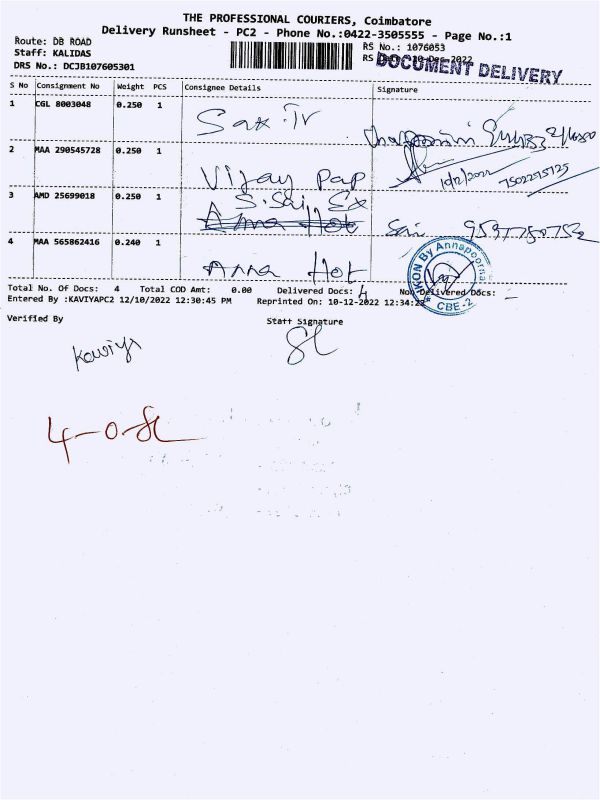 THE PROFESSIONAL COURIERS, Coimbatore
Delivery Runsheet - PC2 - Phone No.:0422-3505555 - Page No.:1
Route: DB ROAD
RS No.: 1076053
Staff: KALIDAS
RS 10-Dec-2022
DOCUMENT DELIVERY
DRS No.: DCJB107605301
S No Consignment No Weight PCS Consignee Details Signature
1 CGL 8003048 0.250 1 Sax Tr
2 MAA 290545728 0.250 1 Vijay pap
10/12/2022 7502275725
3 AMD 25699018 0.250 1 S. Sai Ex
Anna Hot
Sai
4 MAA 565862416 0.240 1 Anna Hot
KON By Annapoorna
CBE-2
Total No. Of Docs: 4 Total COD Amt: 0.00 Delivered Docs: 4 Non Delivered Docs: -
Entered By :KAVIYAPC2 12/10/2022 12:30:45 PM Reprinted On: 10-12-2022 12:34:23
Verified By Staff Signature
Kaviya
4-0-